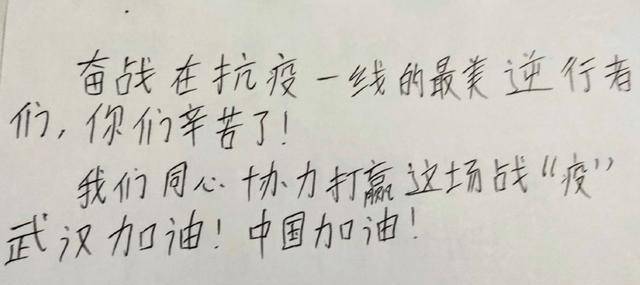 奋战在抗疫一线的最美逆行者
们,你们辛苦了!
我们同心协力打赢这场战“疫”
武汉加油!中国加油!